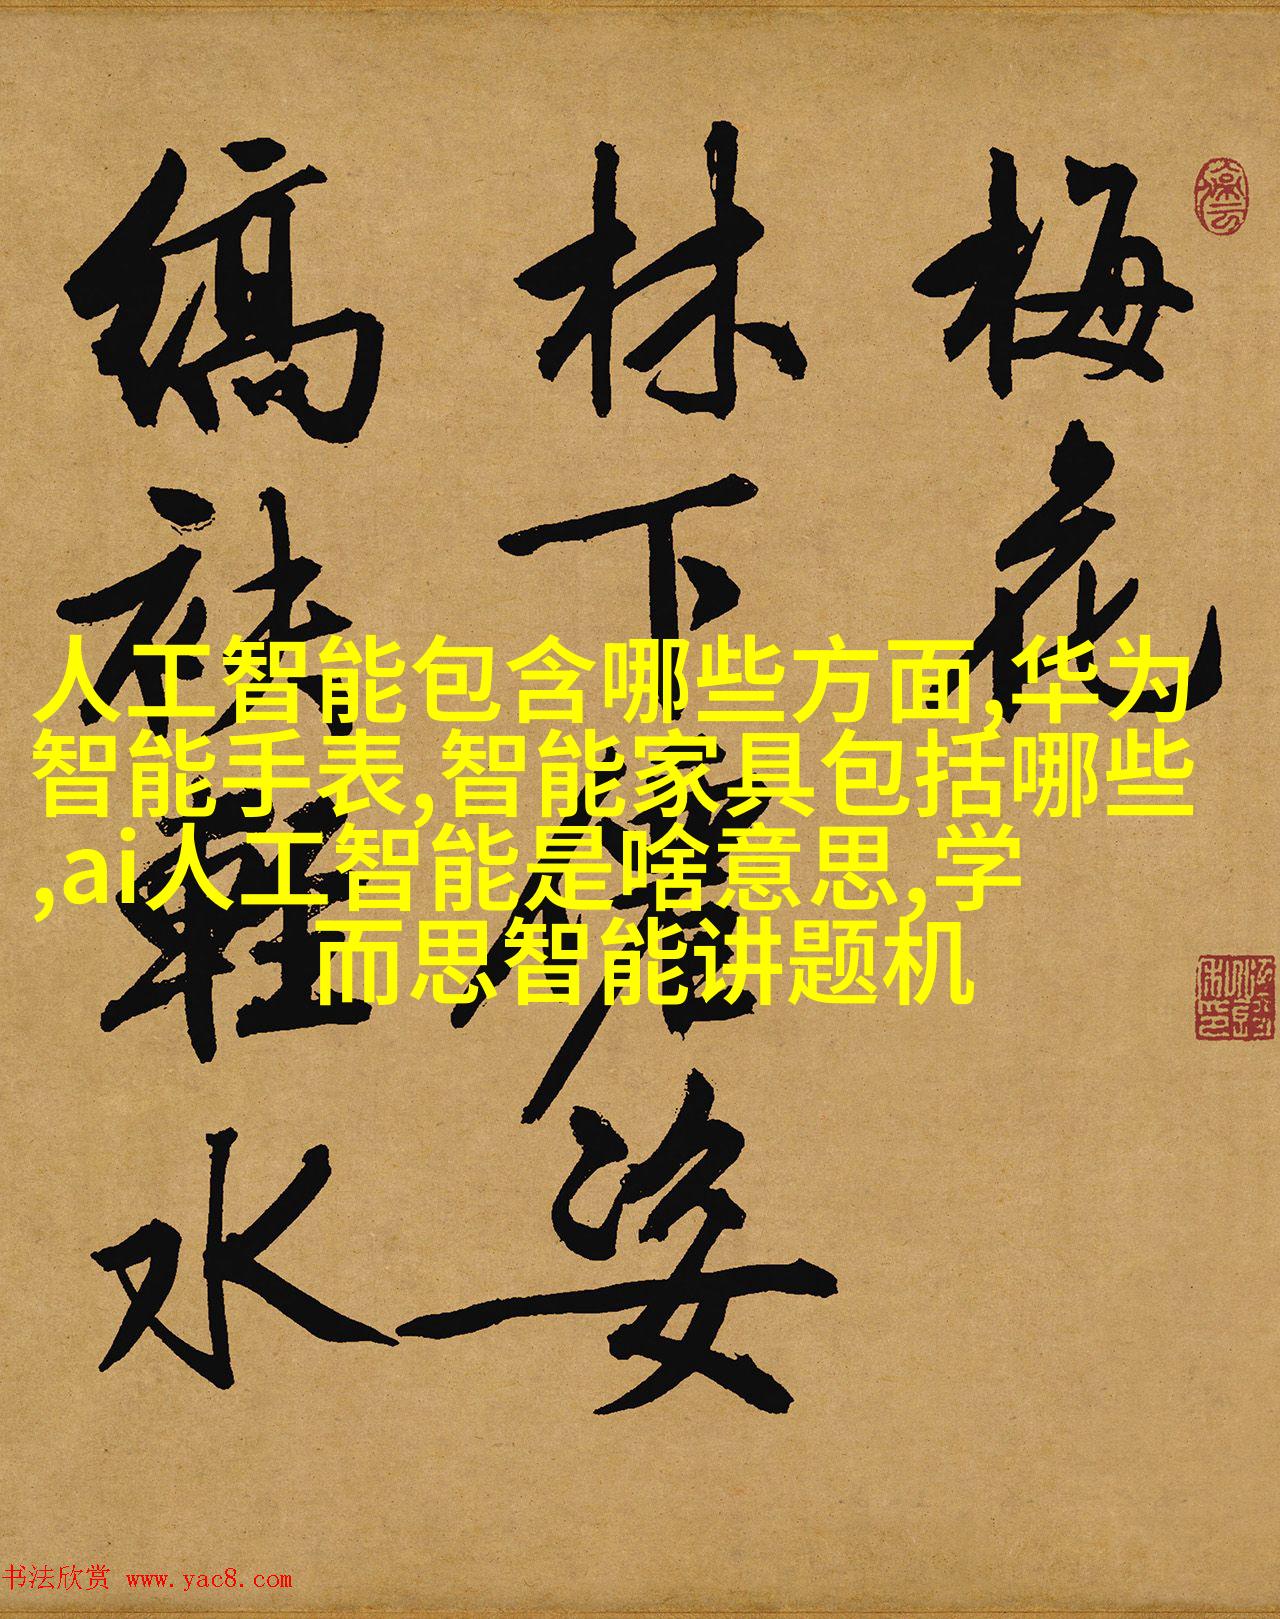 梅花
林下仙姿
缟袂轻水
人工智能包含哪些方面,华为
智能手表,智能家具包括哪些
,ai人工智能是啥意思,学
而思智能讲题机
书法欣赏 www.yac8.com